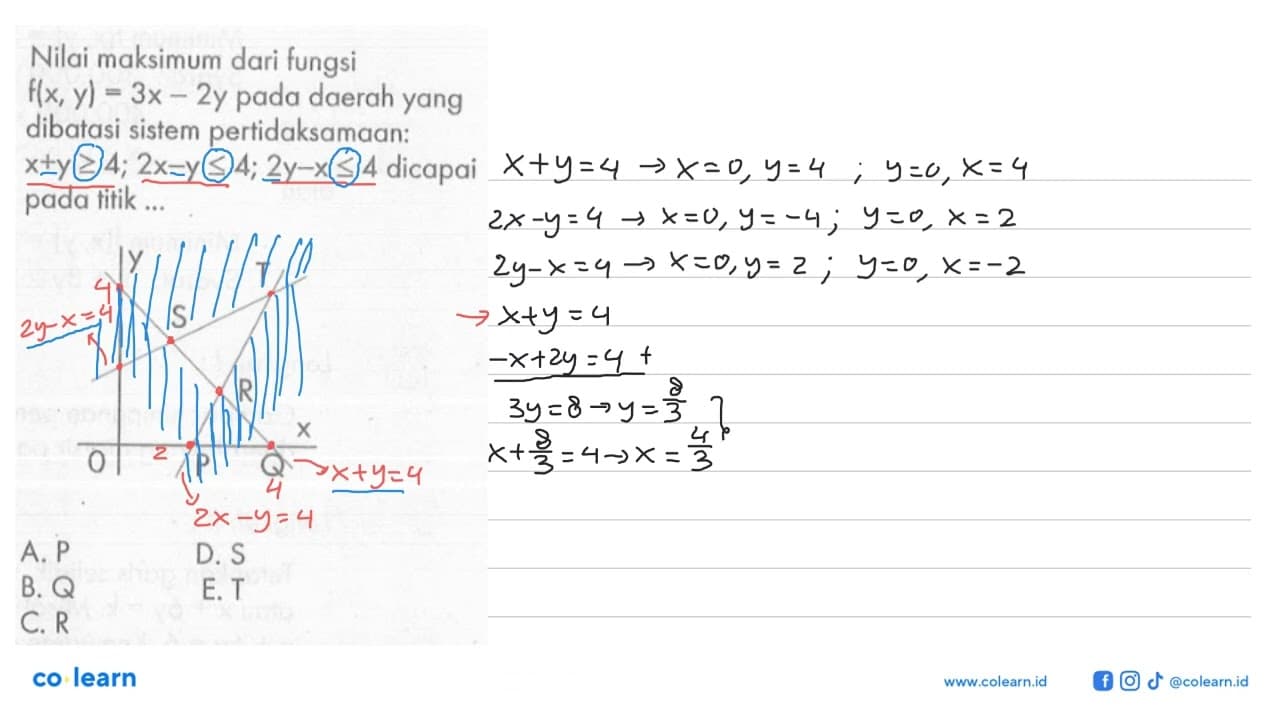 Nilai maksimum dari fungsi
f(x, y) = 3x – 2y pada daerah yang
dibatasi sistem pertidaksamaan:
x+y ≥ 4; 2x–y ≤ 4; 2y–x ≤ 4 dicapai
pada titik ...
Y
4
T
S
2y-x=4
R
X
O
2
P
Q
4
x+y=4
2x-y=4
A. P
D. S
B. Q
E. T
C. R
x+y=4 → x=0, y=4 ; y=0, x=4
2x-y=4 → x=0, y=-4; y=0, x=2
2y-x=4 → x=0, y=2 ; y=0, x=-2
→ x+y=4
-x+2y=4 +
3y=8 → y=8/3
x+8/3=4 → x=4/3
co·learn
www.colearn.id
@colearn.id